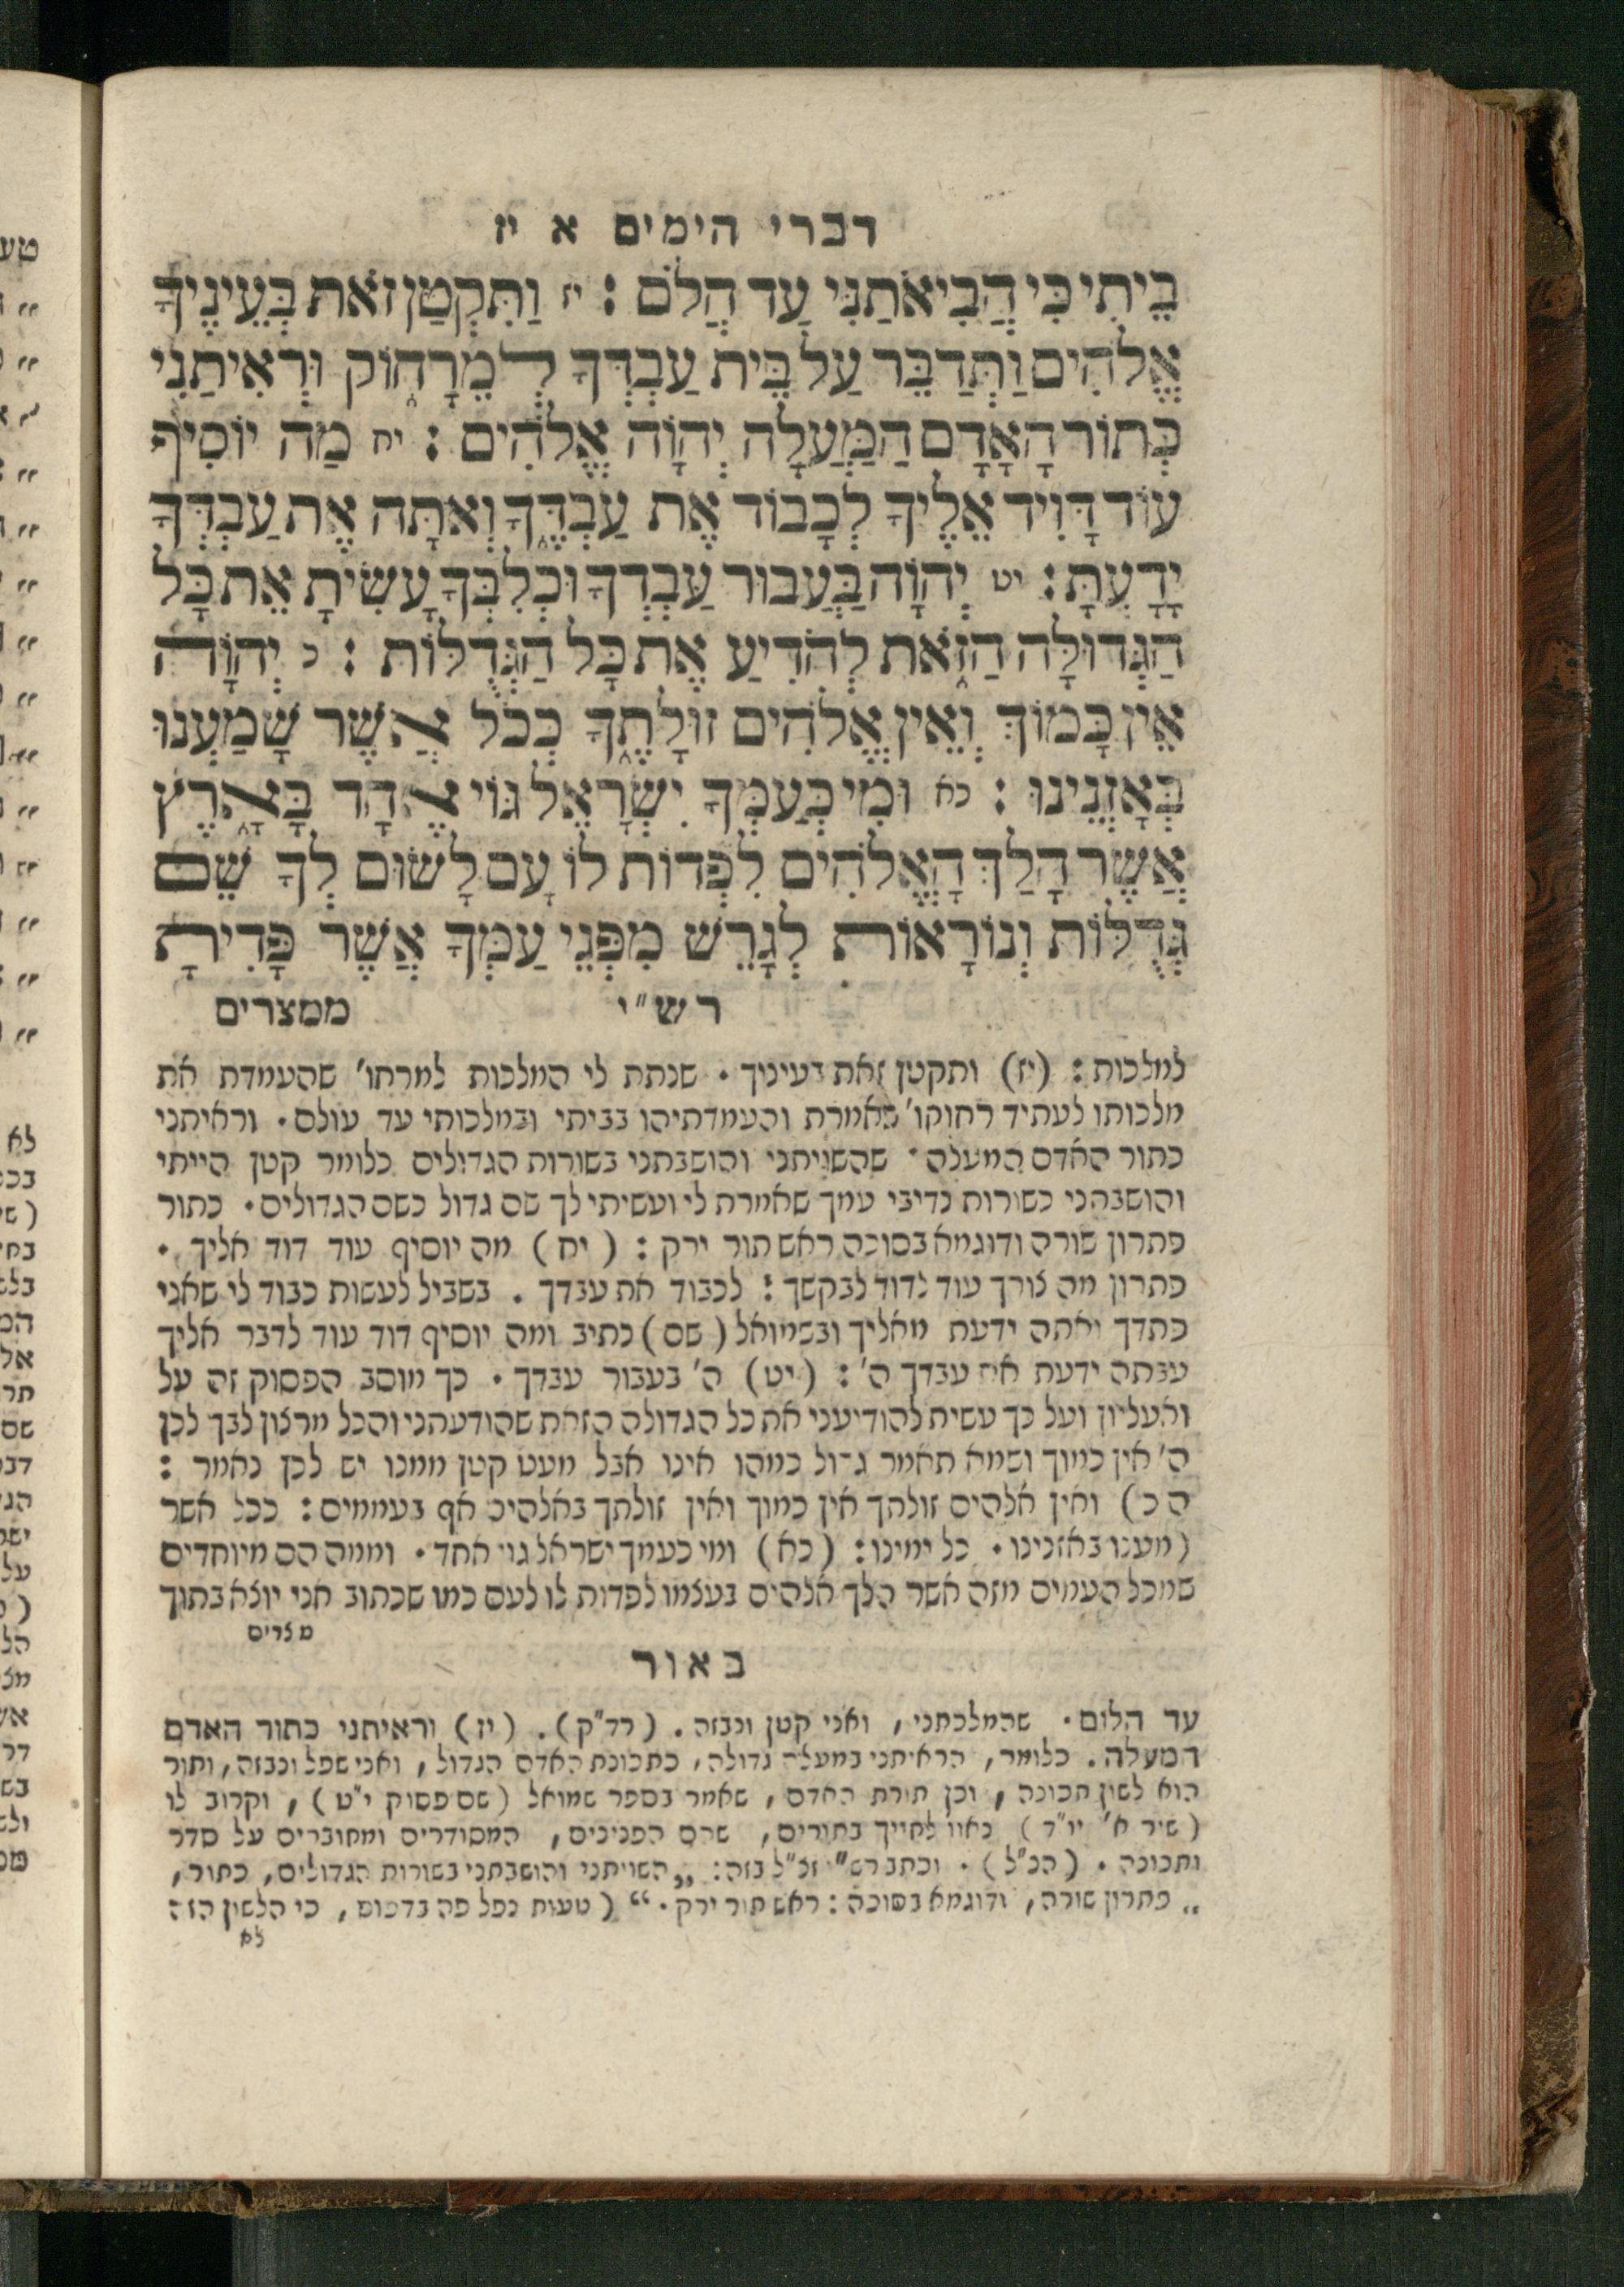 דברי הימים א יז
בֵיתִי כִּי הֲבִיאֹתַנִּי עַד הֲלֹם : יז וַתִּקְטַן זֹאת בְּעֵינֶיךָ
אֱלֹהִים וַתְּדַבֵּר עַל בֵּית עַבְדְּךָ לְמֵרָחוֹק וּרְאִיתַנִי
כְּתוֹר הָאָדָם הַמַּעֲלָה יְהוָֹה אֱלֹהִים : יח מַה יוֹסִיף
עוֹד דָּוִיד אֵלֶיךָ לְכָבוֹד אֶת עַבְדֶּךָ וְאַתָּה אֶת עַבְדְּךָ
יָדָעְתָּ : יט יְהוָֹה בַּעֲבוּר עַבְדְּךָ וּכְלִבְּךָ עָשִׂיתָ אֵת כָּל
הַגְּדוּלָּה הַזֹּאת לְהֹדִיעַ אֶת כָּל הַגְּדֻלּוֹת : כ יְהוָֹה
אֵין כָּמוֹךָ וְאֵין אֱלֹהִים זוּלָתֶךָ כְּכֹל אֲשֶׁר שָׁמַעְנוּ
בְּאָזְנֵינוּ : כא וּמִי כְּעַמְּךָ יִשְׂרָאֵל גּוֹי אֶחָד בָּאָרֶץ
אֲשֶׁר הָלַךְ הָאֱלֹהִים לִפְדּוֹת לוֹ עָם לָשׂוּם לְךָ שֵׁם
גְּדֻלּוֹת וְנוֹרָאוֹת לְגָרֵשׁ מִפְּנֵי עַמְּךָ אֲשֶׁר פָּדִיתָ
רש"י ממצרים
למלכות : (יז) ותקטן זאת בעיניך · שנתת לי המלכות למרחו' שהעמדת את
מלכותו לעתיד רחוקו' שאמרת והעמדתיהו בביתי ובמלכותי עד עולם · וראיתני
כתור האדם המעלה · שהשויתני והושבתני בשורות הגדולים כלומר קטן הייתי
והושבתני בשורות נדיבי עמך שאמרת לי ועשיתי לך שם גדול כשם הגדולים · כתור
פתרון שורה ודוגמא בסוכה ראש תור ירק : (יח) מה יוסיף עוד דוד אליך ·
פתרון מה צורך עוד לדוד לבקשך : לכבוד את עבדך . בשביל לעשות כבוד לי שאני
ואתה ידעת מאליך ובשמואל (שם) כתיב ומה יוסיף דוד עוד לדבר אליך
ידעת את עבדך ה' : (יט) ה' בעבור עבדך · כך מוסב הפסוק זה על
ועל כך עשית להודיעני את כל הגדולה הזאת שהודעתני והכל מרצון לבך לכן
ה' אין כמוך ושמא תאמר גדול כמהו אינו אבל מעט קטן ממנו יש לכן נאמר :
(כ) ואין אלהים זולתך אין כמוך ואין זולתך באלהים אף בעממים : ככל אשר
באזנינו · כל ימינו : (כא) ומי כעמך ישראל גוי אחד · וממה הם מיוחדים
שמכל העמים מזה אשר הלך אלהים בעצמו לפדות לו לעם כמו שכתוב אני יוצא בתוך
מצרים
באור
עד הלום · שהמלכתני , ואני קטן ונבזה . (רד"ק) . (יז) וראיתני כתור האדם
המעלה . כלומר , הראיתני במעלה גדולה , כתכונת האדם הגדול , ואני שפל ונבזה , ותור
הוא לשון תכונה , וכן תורת האדם , שאמר בספר שמואל (שם פסוק י"ט) , וקרוב לו
(שיר א' יו"ד) נאוו לחייך בתורים , שהם הפנינים , המסודרים ומחוברים על סדר
ותכונה · (הנ"ל) · וכתב רש"י זכ"ל בזה : „ השויתני והושבתני בשורות הגדולים , כתור ,
„ פתרון שורה , ודוגמא בסוכה : ראש תור ירק · “ (טעות נפל פה בדפוס , כי הלשון הזה
לא